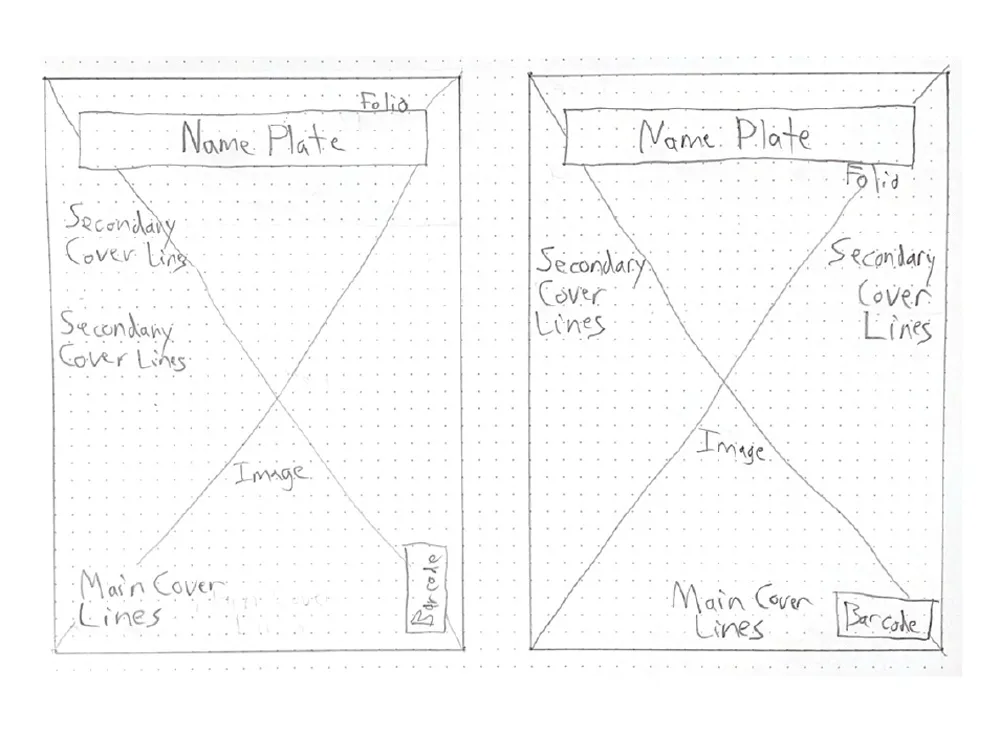 Folio
Name Plate
Secondary
Cover Lines
Secondary
Cover Lines
Image
Barcode
Main Cover
Lines
Name Plate
Folio
Secondary
Cover
Lines
Secondary
Cover
Lines
Image
Main Cover
Lines
Barcode